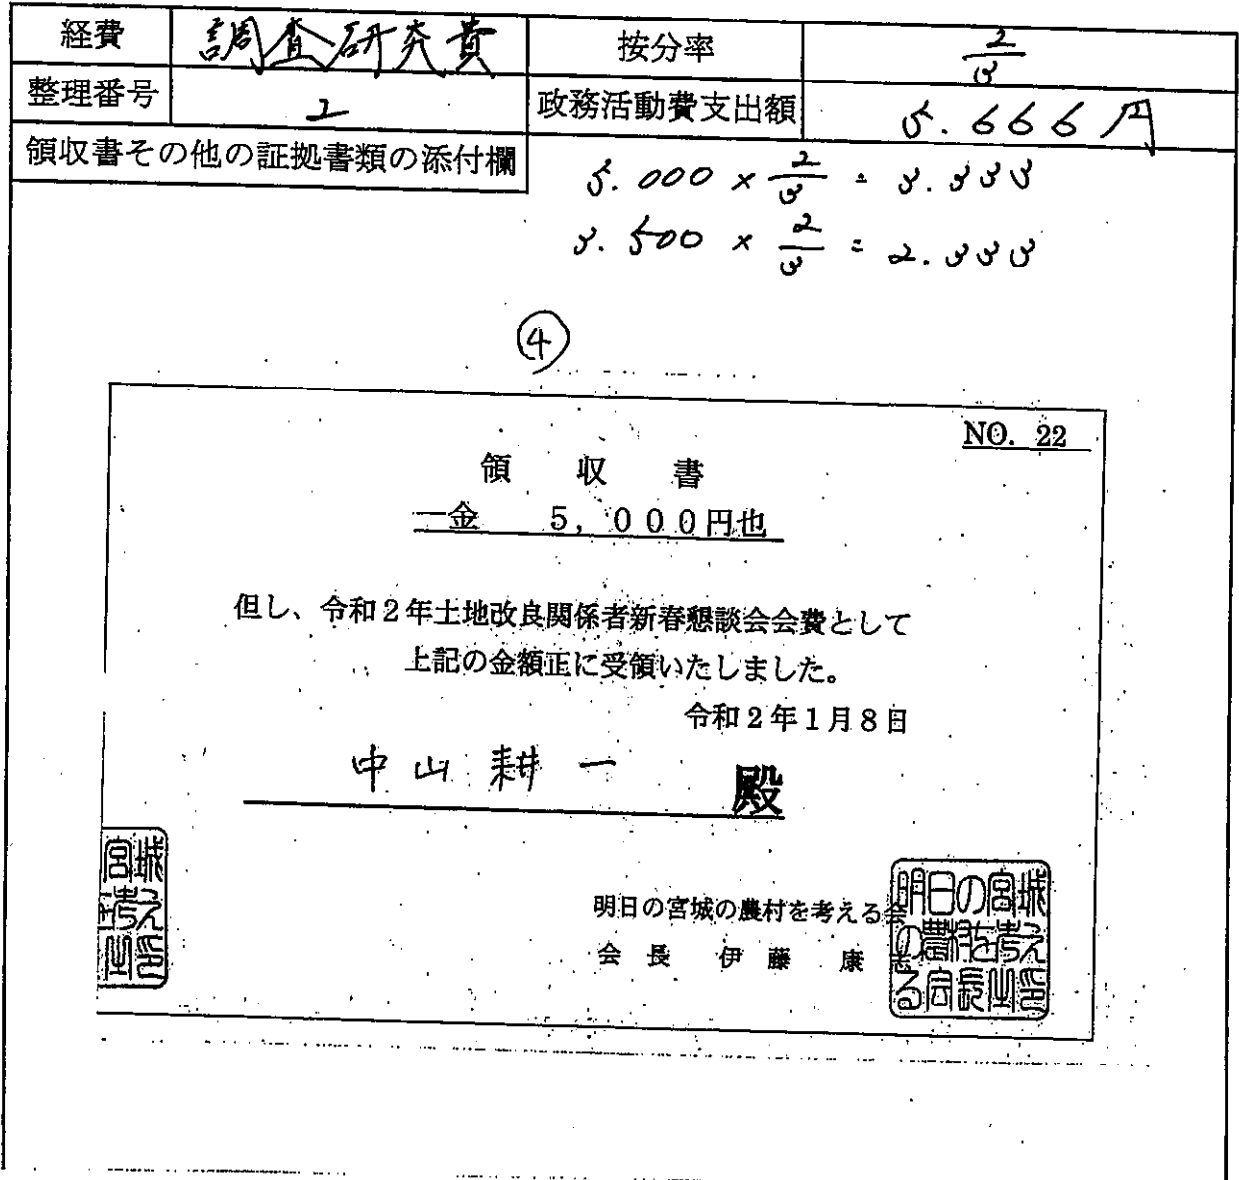 経費 調査研究費 按分率 2/3
整理番号 2 政務活動費支出額 5.666円
領収書その他の証拠書類の添付欄
5.000 × 2/3 = 3.333
3.500 × 2/3 = 2.333
④
NO. 22
領 収 書
一金 5,000円也
但し、令和2年土地改良関係者新春懇談会会費として
上記の金額正に受領いたしました。
令和2年1月8日
中山耕一 殿
明日の宮城の農村を考える会
会長 伊藤 康志
明日の宮城
の農村を考え
る会長之印
宮城
を考え
之印